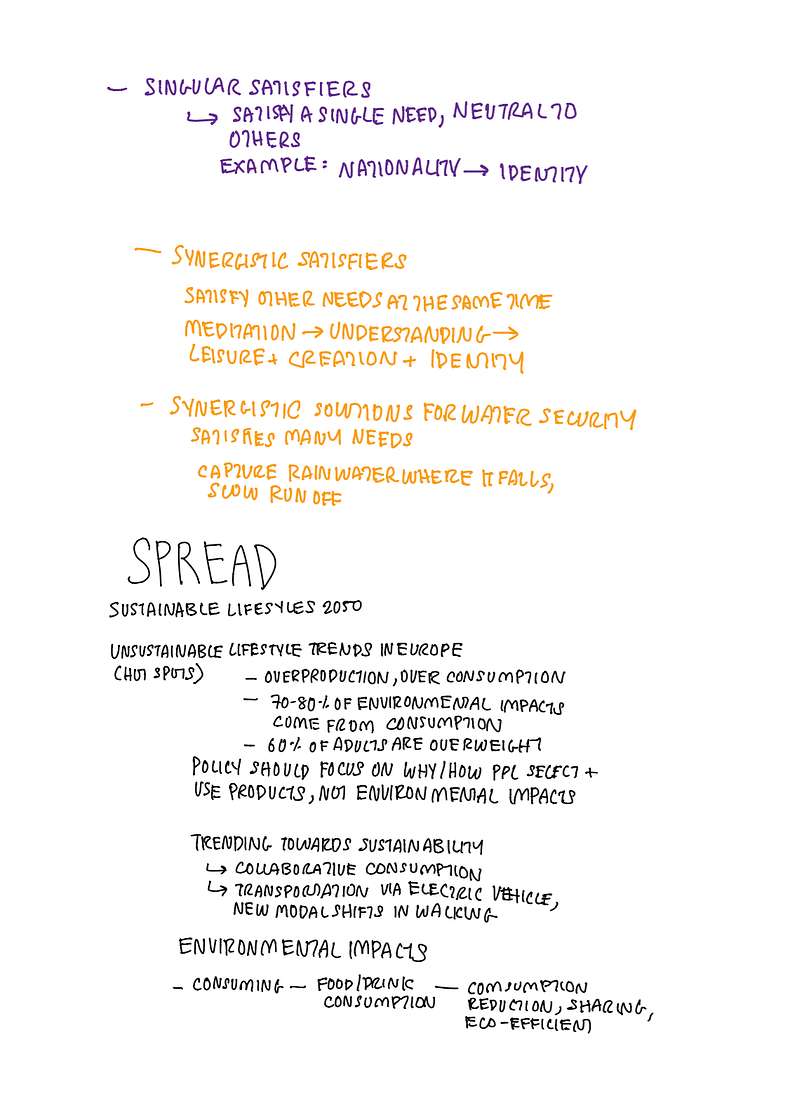 — SINGULAR SATISFIERS
↳ SATISFY A SINGLE NEED, NEUTRAL TO
OTHERS
EXAMPLE: NATIONALITY → IDENTITY
— SYNERGISTIC SATISFIERS
SATISFY OTHER NEEDS AT THE SAME TIME
MEDITATION → UNDERSTANDING →
LEISURE + CREATION + IDENTITY
- SYNERGISTIC SOLUTIONS FOR WATER SECURITY
SATISFIES MANY NEEDS
CAPTURE RAINWATER WHERE IT FALLS,
SLOW RUN OFF
SPREAD
SUSTAINABLE LIFESYLES 2050
UNSUSTAINABLE LIFESTYLE TRENDS IN EUROPE
(HOT SPOTS) — OVERPRODUCTION, OVER CONSUMPTION
— 70-80% OF ENVIRONMENTAL IMPACTS
COME FROM CONSUMPTION
— 60% OF ADULTS ARE OVERWEIGHT
POLICY SHOULD FOCUS ON WHY/HOW PPL SELECT +
USE PRODUCTS, NOT ENVIRONMENTAL IMPACTS
TRENDING TOWARDS SUSTAINABILITY
↳ COLLABORATIVE CONSUMPTION
↳ TRANSPORTATION VIA ELECTRIC VEHICLE,
NEW MODAL SHIFTS IN WALKING
ENVIRONMENTAL IMPACTS
- CONSUMING — FOOD/DRINK — COMSUMPTION
CONSUMPTION REDUCTION, SHARING,
ECO-EFFICIENT